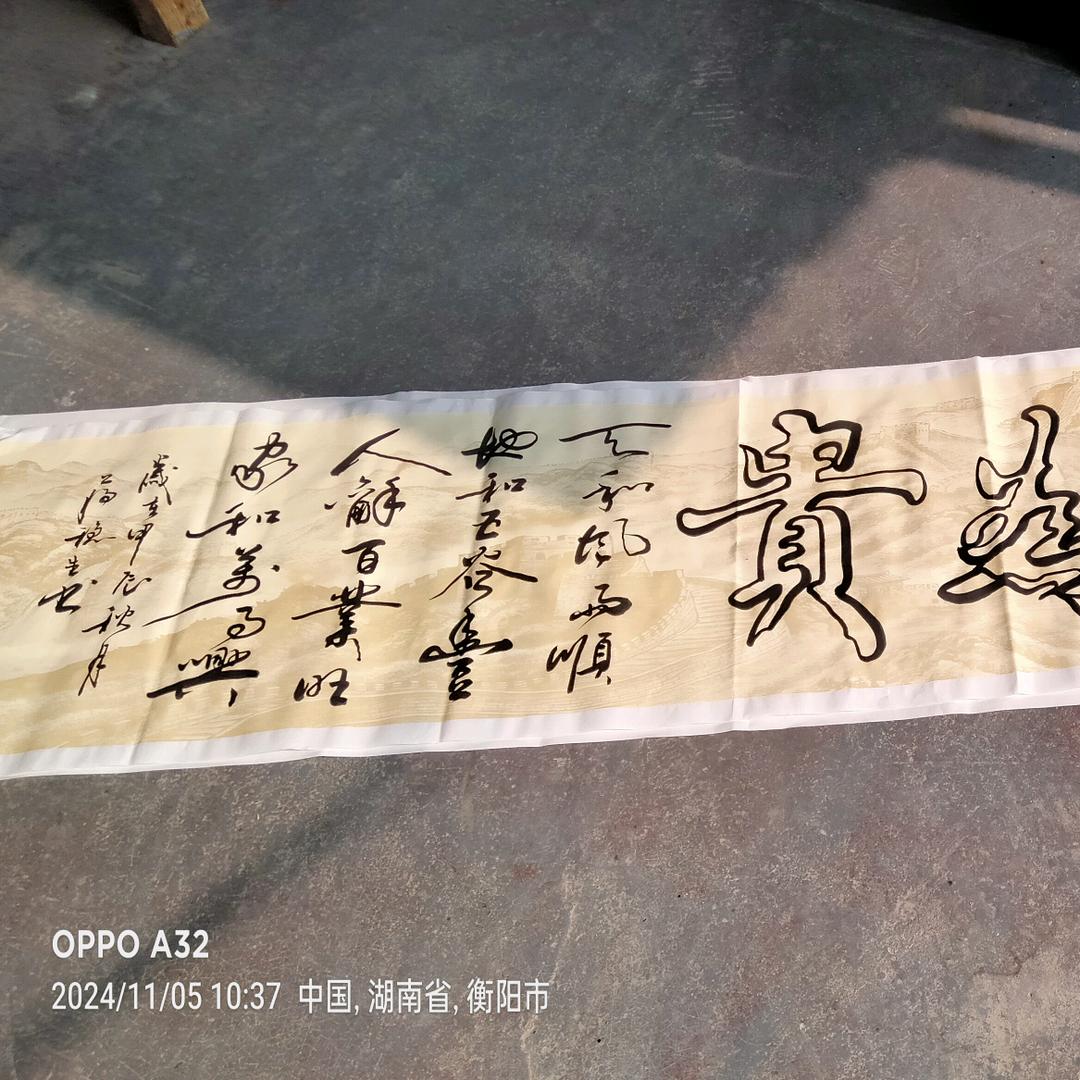 為貴
天和風雨順
地和五谷豐
人龢百業旺
家和萬事興
歲在甲辰秋月
生书
OPPO A32
2024/11/05 10:37 中国, 湖南省, 衡阳市